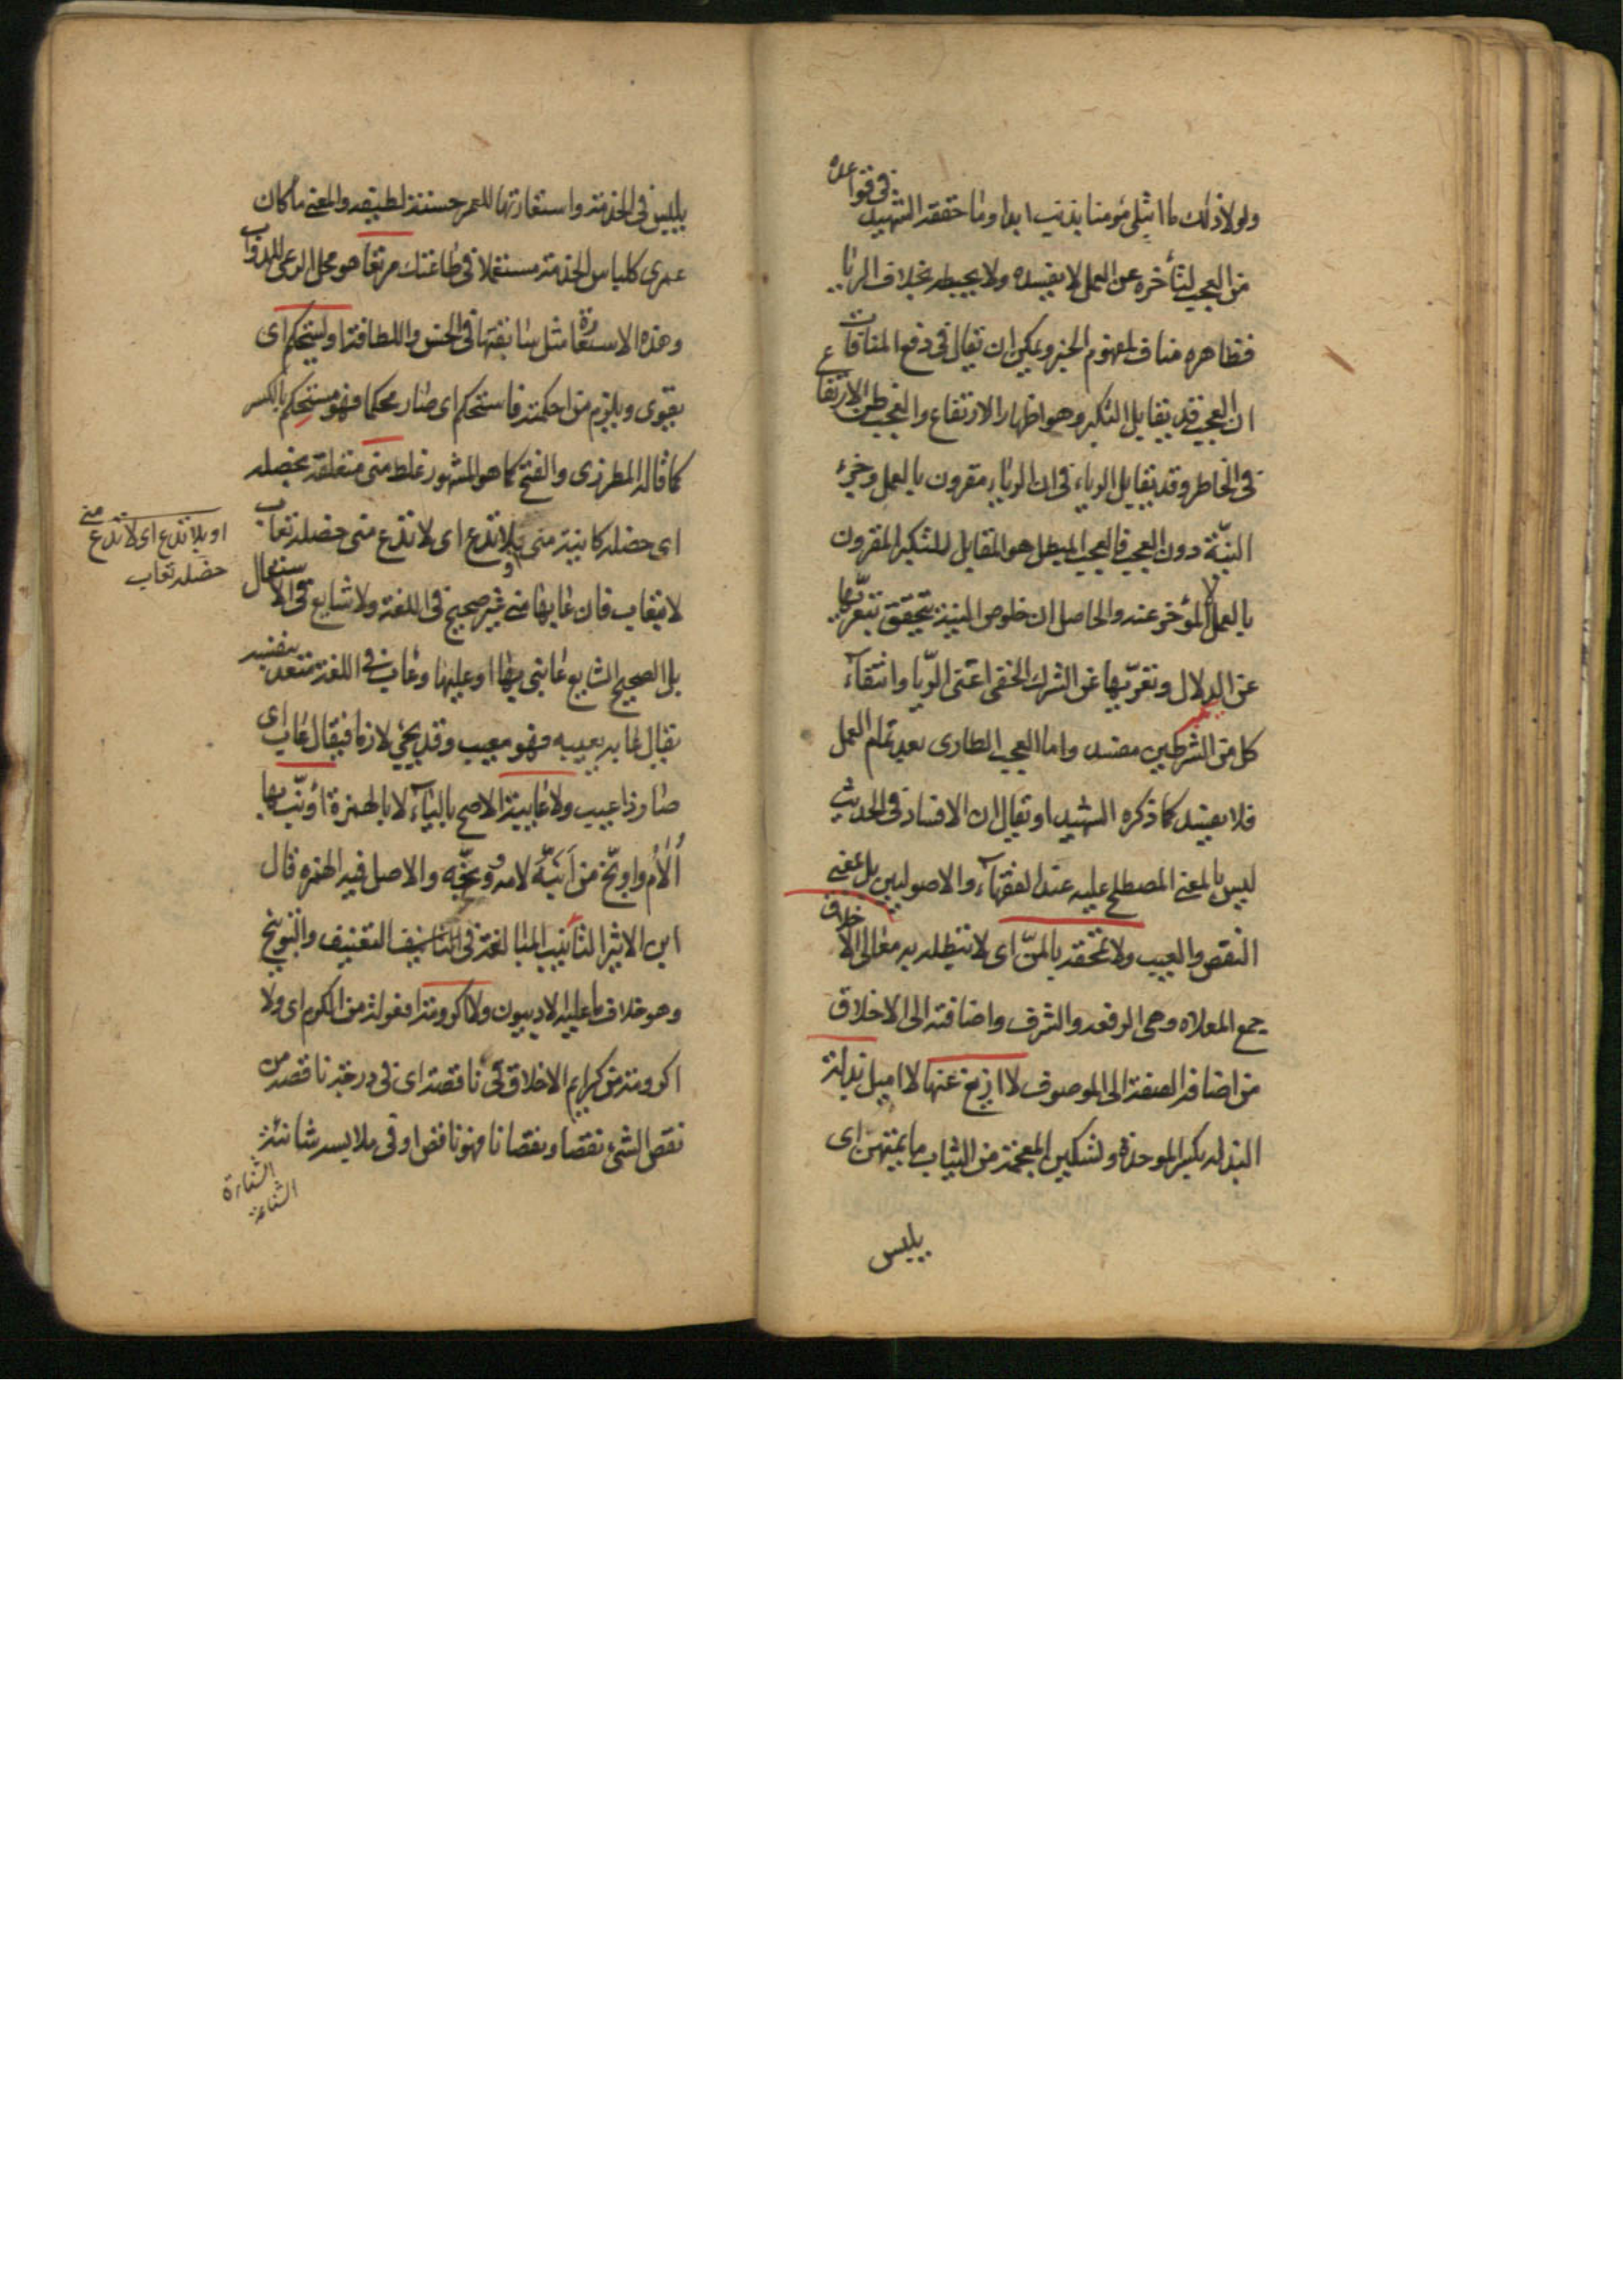 ولولا ذلك ما ابتلى مؤمنا بذنب ابدا وما حققه الشهيد فى قواعده
من العجب لتأخره عن العمل لا يفسده ولا يحبطه بخلاف الريا
فظاهره مناف لمفهوم الخبر ويمكن ان يقال فى دفع المنافات
ان العجب قد يقابل التكبر وهو اظهار الارتفاع والعجب ظن الارتفاع
فى الخاطر وقد يقابل الرياء فى ان الرياء مقرون بالعمل وجزء
النية دون العجب فالعجب المبطل هو المقابل للتكبر المقرون
بالعمل لا المؤخر عنه والحاصل ان خلوص النية يتحقق بتعريها
عن الدلال وتعريها عن الشرك الخفى اعنى الريا وانتفاء
كل من الشرطين مفسد واما العجب الطارى بعد تمام العمل
فلا يفسد كما ذكره الشهيد او يقال ان الافساد فى الحديث
ليس بالمعنى المصطلح عليه عند الفقهاء والاصوليين بل بمعنى
النقص والعيب ولا تمحقه بالمن اى لا تبطله به معالى الاخلاق
جمع المعلاة وهى الرفعة والشرف واضافته الى الاخلاق
من اضافة الصفة الى الموصوف لا ازيغ عنها لا اميل بذلة
البذلة بكسر الموحدة وتسكين المعجمة من الثياب ما يمتهن اى
يلبس
يلبس فى الخدمة واستعارتها للعمر حسنة لطيفة والمعنى ما كان
عمرى كلباس الخدمة مستعملا فى طاعتك مرتعا هو محل الرعى للدواب
وهذه الاستعارة مثل سابقتها فى الحسن واللطافة او يستحكم اى
يقوى ويلزم من احكمته فاستحكم اى صار محكما فهو مستحكم بالكسر
كما قاله المطرزى والفتح كما هو المشهور غلط منى متعلقة بخصلة
اى خصلة كاينة منى او بلا تدع اى لا تدع منى خصلة تعاب
لا بتعاب فان عابها منى غير صحيح فى اللغة ولا شايع فى الاستعمال
بل الصحيح الشايع عابنى بها او عليها وعاب فى اللغة متعد بنفسه
يقال عابه يعيبه فهو معيب وقد يجئ لازما فيقال عاب اى
صار ذا عيب ولا عايبة الاصح بالياء لا بالهمزة اؤنب بها
أُلام واوبخ من أنّبه لامه ووبخه والاصل فيه الهمزه قال
ابن الاثير التأنيب المبالغة فى التعنيف والتوبيخ
وهو خلاف ما عليه الادبيون ولا اكرومة افعولة من الكرم اى ولا
اكرومة من كرايم الاخلاق فىّ ناقصة اى فى درجة ناقصة من
نقص الشئ نقصا ونقصانا فهو ناقص او فى ملابسه شانئة
او بلا تدع اى لا تدع منى
خصلة تعاب